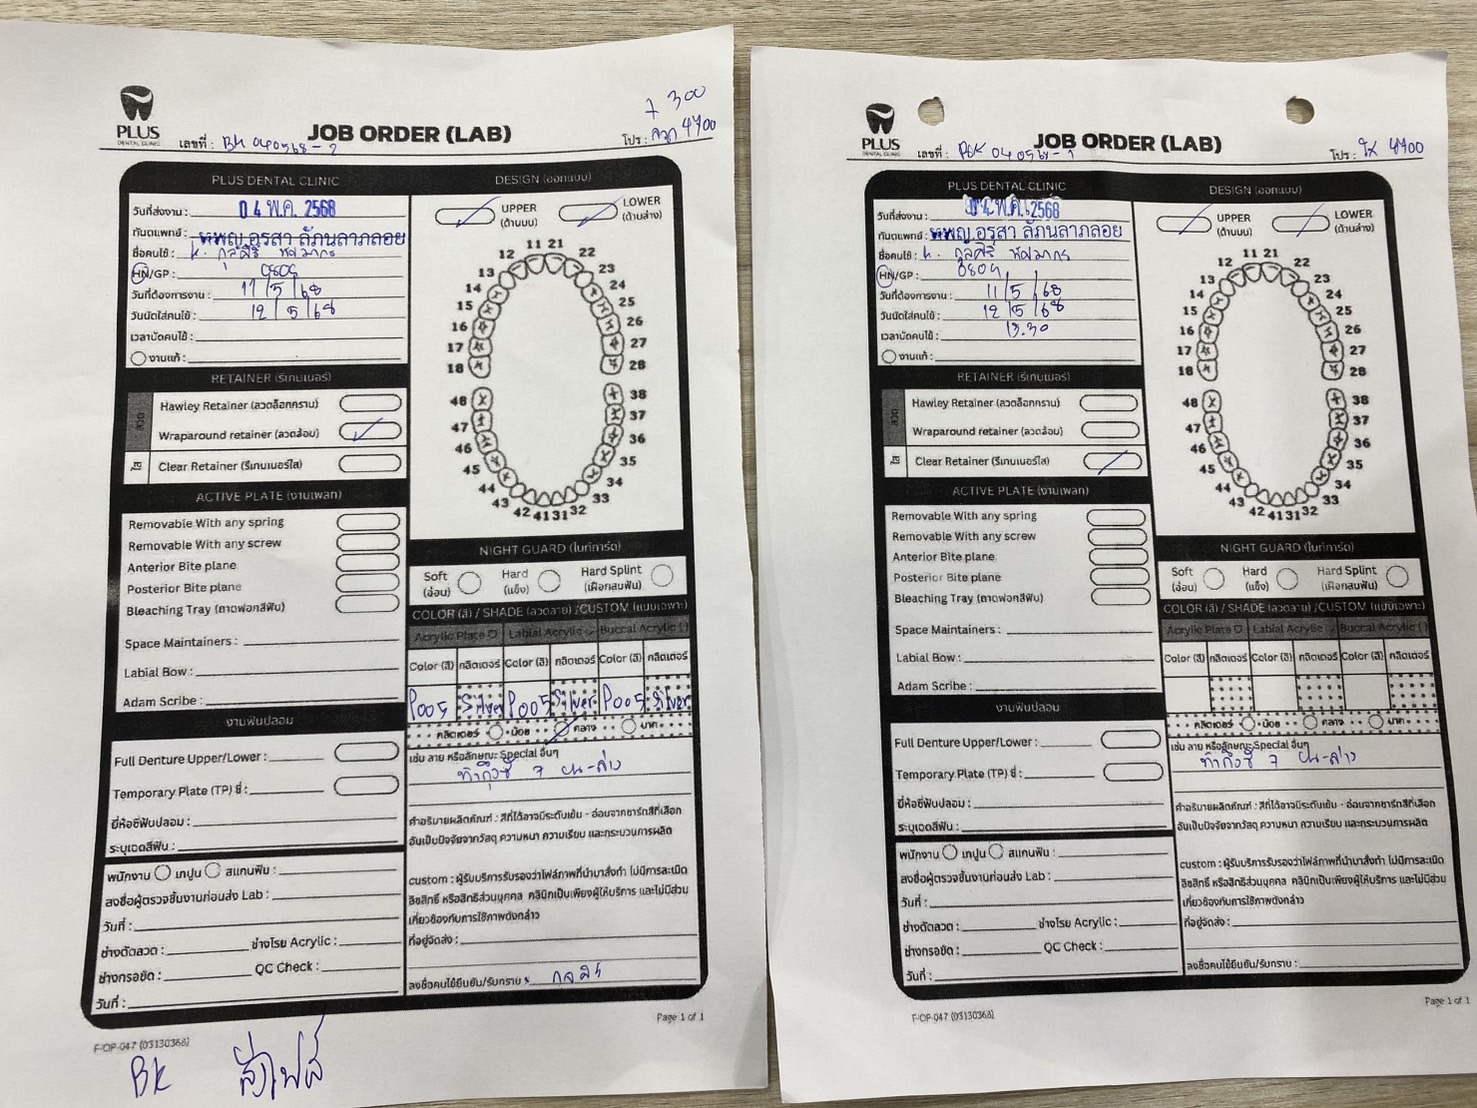 PLUS
DENTAL CLINIC
JOB ORDER (LAB)
+ 300
เลขที่ : BK 040568-2
โปร : ลวด 4700
PLUS DENTAL CLINIC
วันที่ส่งงาน : 04 พ.ค. 2568
ทันตแพทย์ : ทพญ.อรุสา ลัภนลาภลอย
ชื่อคนไข้ : k.
HN/GP : 0809
วันที่ต้องการงาน : 11/5/68
วันนัดใส่คนไข้ : 12/5/68
เวลานัดคนไข้ :
งานแก้ :
RETAINER (รีเทนเนอร์)
ลวด
Hawley Retainer (ลวดล็อกกราม)
Wraparound retainer (ลวดล้อม)
ใส
Clear Retainer (รีเทนเนอร์ใส)
ACTIVE PLATE (งานเพลท)
Removable With any spring
Removable With any screw
Anterior Bite plane
Posterior Bite plane
Bleaching Tray (ถาดฟอกสีฟัน)
Space Maintainers :
Labial Bow :
Adam Scribe :
งานฟันปลอม
Full Denture Upper/Lower :
Temporary Plate (TP) ซี่ :
ยี่ห้อซี่ฟันปลอม :
ระบุเฉดสีฟัน :
พนักงาน เทปูน สแกนฟัน :
ลงชื่อผู้ตรวจชิ้นงานก่อนส่ง Lab :
วันที่ :
ช่างดัดลวด : ช่างโรย Acrylic :
ช่างกรอขัด : QC Check :
วันที่ :
DESIGN (ออกแบบ)
UPPER (ด้านบน)
LOWER (ด้านล่าง)
11 21
12 22
13 23
14 24
15 25
16 26
17 27
18 28
48 38
47 37
46 36
45 35
44 34
43 33
42 41 31 32
NIGHT GUARD (ไนท์การ์ด)
Soft (อ่อน)
Hard (แข็ง)
Hard Splint (เฝือกสบฟัน)
COLOR (สี) / SHADE (ลวดลาย) /CUSTOM (แบบเฉพาะ)
Acrylic Plate Labial Acrylic Buccal Acrylic
Color (สี) กลิตเตอร์ Color (สี) กลิตเตอร์ Color (สี) กลิตเตอร์
P005 Silver P005 Silver P005 Silver
กลิตเตอร์ น้อย กลาง มาก
เช่น ลาย หรือลักษณะ Special อื่นๆ
ทำถึงซี่ 7 บน-ล่าง
คำอธิบายผลิตภัณฑ์ : สีที่ได้อาจมีระดับเข้ม - อ่อนจากชาร์ทสีที่เลือก
อันเป็นปัจจัยจากวัสดุ ความหนา ความเรียบ และกระบวนการผลิต
custom : ผู้รับบริการรับรองว่าไฟล์ภาพที่นำมาสั่งทำ ไม่มีการละเมิด
ลิขสิทธิ์ หรือสิทธิส่วนบุคคล คลินิกเป็นเพียงผู้ให้บริการ และไม่มีส่วน
เกี่ยวข้องกับการใช้ภาพดังกล่าว
ที่อยู่จัดส่ง :
ลงชื่อคนไข้ยืนยัน/รับทราบ
F-OP-047 (03130368)
Page 1 of 1
BK
PLUS
DENTAL CLINIC
JOB ORDER (LAB)
เลขที่ : BK 040568-1
โปร : ใส 4700
PLUS DENTAL CLINIC
วันที่ส่งงาน : 04 พ.ค. 2568
ทันตแพทย์ : ทพญ.อรุสา ลัภนลาภลอย
ชื่อคนไข้ : k.
HN/GP : 0809
วันที่ต้องการงาน : 11/5/68
วันนัดใส่คนไข้ : 12/5/68
เวลานัดคนไข้ : 13.30
งานแก้ :
RETAINER (รีเทนเนอร์)
ลวด
Hawley Retainer (ลวดล็อกกราม)
Wraparound retainer (ลวดล้อม)
ใส
Clear Retainer (รีเทนเนอร์ใส)
ACTIVE PLATE (งานเพลท)
Removable With any spring
Removable With any screw
Anterior Bite plane
Posterior Bite plane
Bleaching Tray (ถาดฟอกสีฟัน)
Space Maintainers :
Labial Bow :
Adam Scribe :
งานฟันปลอม
Full Denture Upper/Lower :
Temporary Plate (TP) ซี่ :
ยี่ห้อซี่ฟันปลอม :
ระบุเฉดสีฟัน :
พนักงาน เทปูน สแกนฟัน :
ลงชื่อผู้ตรวจชิ้นงานก่อนส่ง Lab :
วันที่ :
ช่างดัดลวด : ช่างโรย Acrylic :
ช่างกรอขัด : QC Check :
วันที่ :
DESIGN (ออกแบบ)
UPPER (ด้านบน)
LOWER (ด้านล่าง)
11 21
12 22
13 23
14 24
15 25
16 26
17 27
18 28
48 38
47 37
46 36
45 35
44 34
43 33
42 41 31 32
NIGHT GUARD (ไนท์การ์ด)
Soft (อ่อน)
Hard (แข็ง)
Hard Splint (เฝือกสบฟัน)
COLOR (สี) / SHADE (ลวดลาย) /CUSTOM (แบบเฉพาะ)
Acrylic Plate Labial Acrylic Buccal Acrylic
Color (สี) กลิตเตอร์ Color (สี) กลิตเตอร์ Color (สี) กลิตเตอร์
กลิตเตอร์ น้อย กลาง มาก
เช่น ลาย หรือลักษณะ Special อื่นๆ
ทำถึงซี่ 7 บน-ล่าง
คำอธิบายผลิตภัณฑ์ : สีที่ได้อาจมีระดับเข้ม - อ่อนจากชาร์ทสีที่เลือก
อันเป็นปัจจัยจากวัสดุ ความหนา ความเรียบ และกระบวนการผลิต
custom : ผู้รับบริการรับรองว่าไฟล์ภาพที่นำมาสั่งทำ ไม่มีการละเมิด
ลิขสิทธิ์ หรือสิทธิส่วนบุคคล คลินิกเป็นเพียงผู้ให้บริการ และไม่มีส่วน
เกี่ยวข้องกับการใช้ภาพดังกล่าว
ที่อยู่จัดส่ง :
ลงชื่อคนไข้ยืนยัน/รับทราบ :
F-OP-047 (03130368)
Page 1 of 1